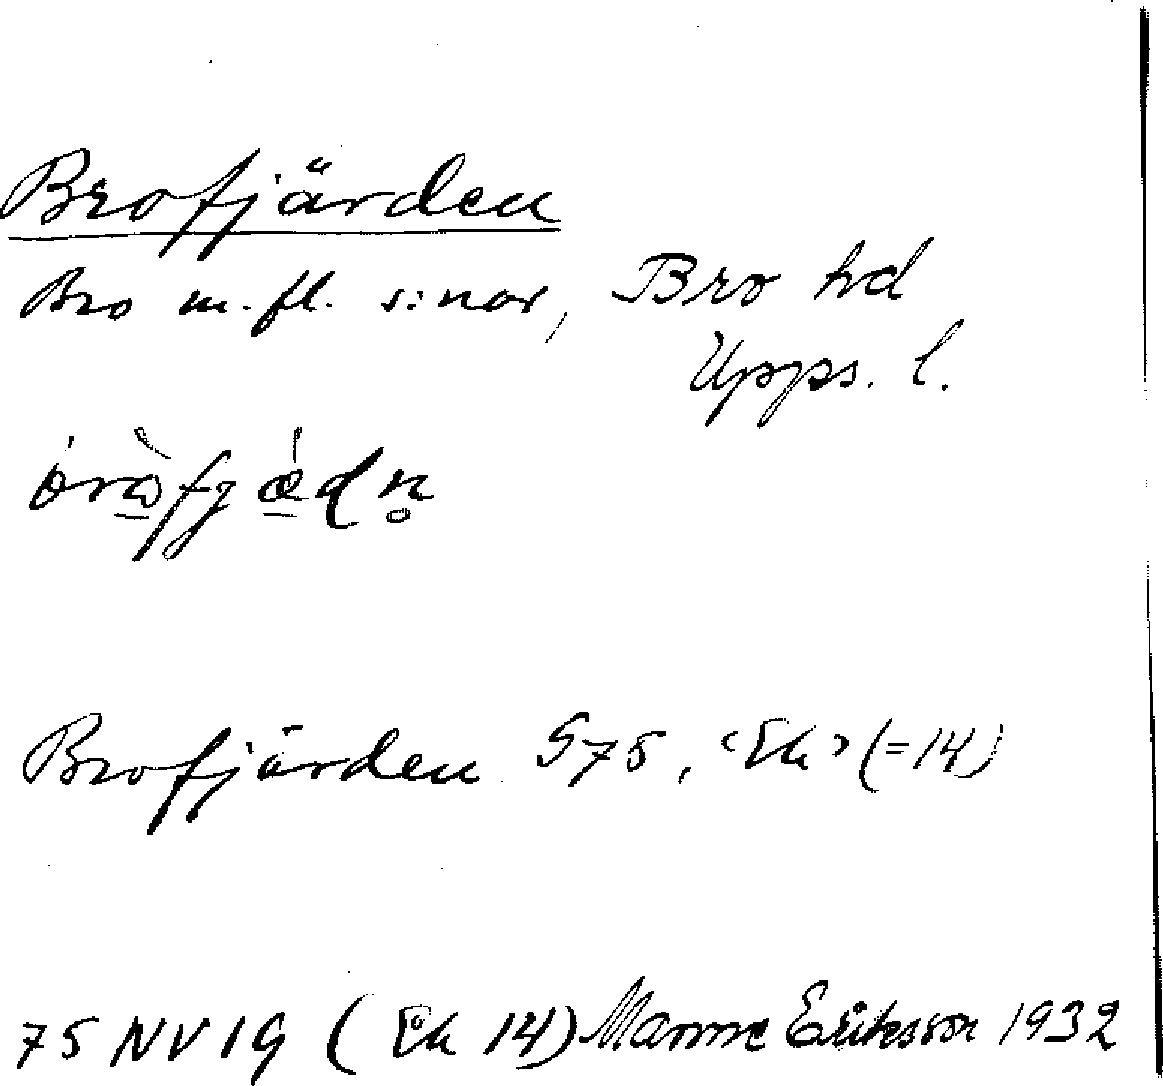 Brofjärden
Bro m.fl. s:nar, Bro hd
Upps. l.
Brofjärden S75, (=14)
75 NV 19 ( Ek 14) Manne Eriksson 1932